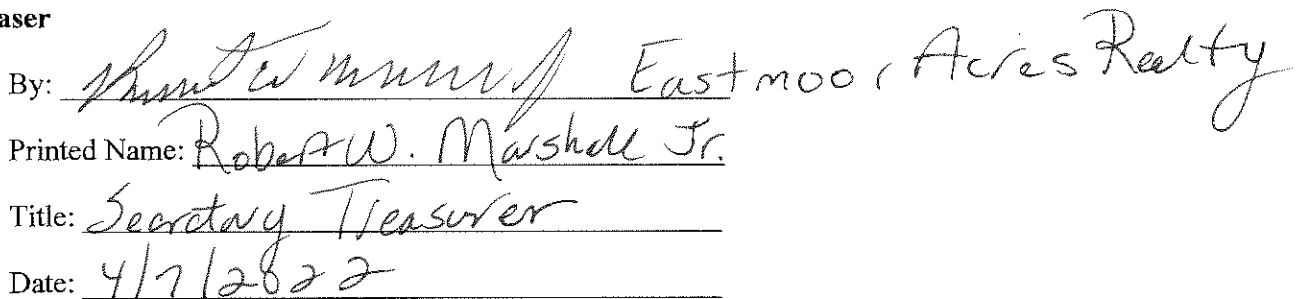 aser
By: Eastmoor Acres Realty
Printed Name: Robert W. Marshall Jr.
Title: Secretary Treasurer
Date: 4/7/2022